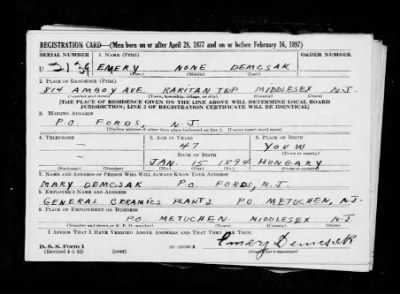 REGISTRATION CARD—(Men born on or after April 28, 1877 and on or before February 16, 1897)
SERIAL NUMBER 1. NAME (Print) ORDER NUMBER
U 3136 EMERY NONE DEMCSAK
(First) (Middle) (Last)
2. PLACE OF RESIDENCE (Print)
814 AMBOY AVE. RARITAN TWP MIDDLESEX N.J.
(Number and street) (Town, township, village, or city) (County) (State)
[THE PLACE OF RESIDENCE GIVEN ON THE LINE ABOVE WILL DETERMINE LOCAL BOARD
JURISDICTION; LINE 2 OF REGISTRATION CERTIFICATE WILL BE IDENTICAL]
3. MAILING ADDRESS
P.O. FORDS, N.J.
[Mailing address if other than place indicated on line 2. If same insert word same]
4. TELEPHONE 5. AGE IN YEARS 6. PLACE OF BIRTH
— 47
DATE OF BIRTH (Town or county)
— JAN. 15 1894 HUNGARY
(Exchange) (Number) (Mo.) (Day) (Yr.) (State or country)
7. NAME AND ADDRESS OF PERSON WHO WILL ALWAYS KNOW YOUR ADDRESS
MARY DEMCSAK P.O. FORDS, N.J.
8. EMPLOYER'S NAME AND ADDRESS
GENERAL CERAMICS PLANTS. P.O. METUCHEN, N.J.
9. PLACE OF EMPLOYMENT OR BUSINESS
P.O. METUCHEN MIDDLESEX N.J.
(Number and street or R. F. D. number) (Town) (County) (State)
I AFFIRM THAT I HAVE VERIFIED ABOVE ANSWERS AND THAT THEY ARE TRUE.
D. S. S. Form 1
(Revised 4-1-42) (over) Emery Demcsak
(Registrant's signature)